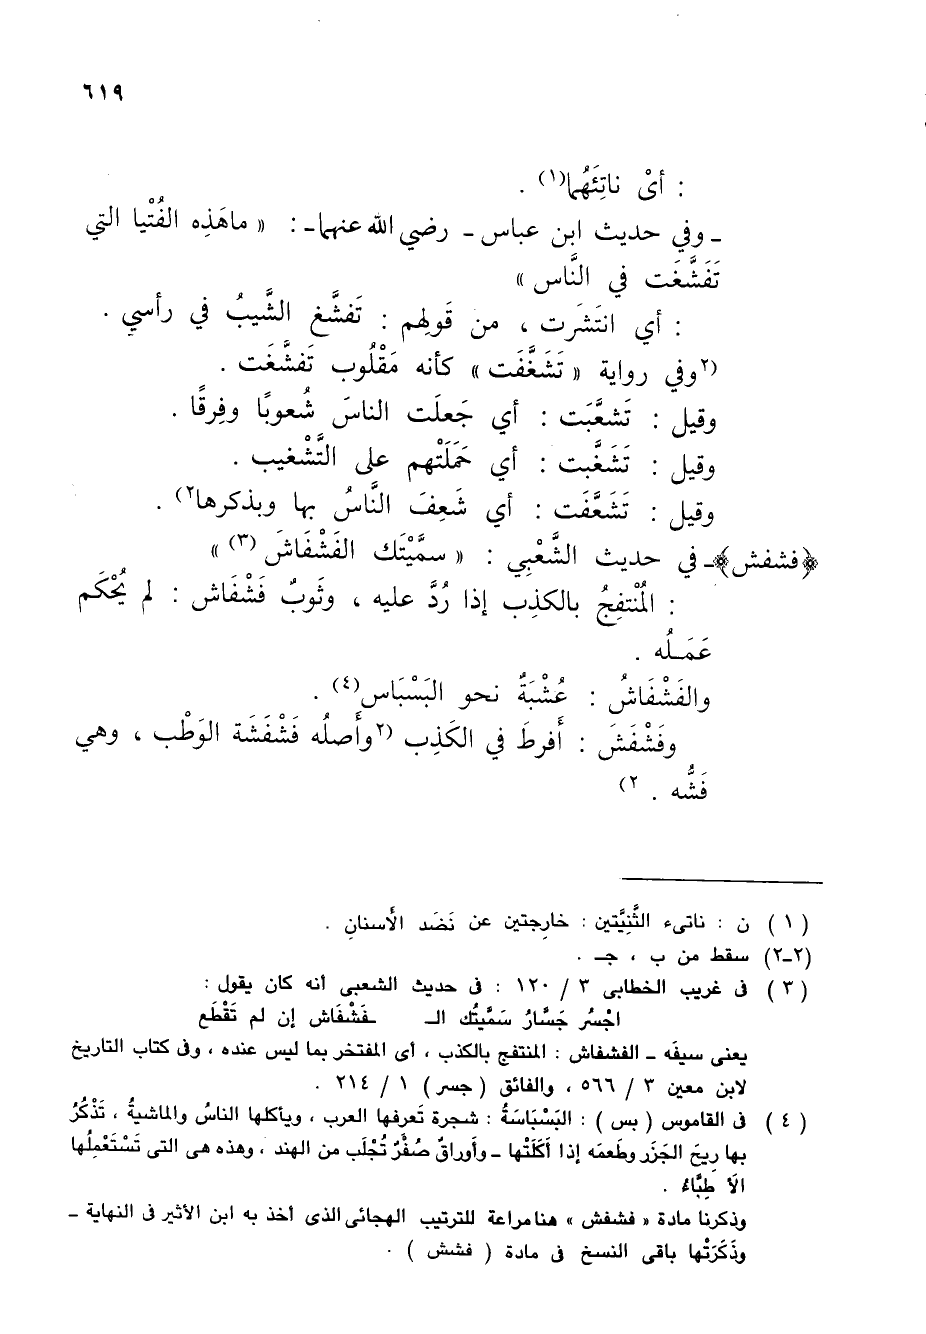 ٦١٩
: أىْ ناتِئَهُما(١) .
ـ وفي حديث ابن عباس ـ رضي الله عنهما ـ : « ماهَذِه الفُتْيا التي
تَفَشَّغَت في النَّاس »
: أي انتَشَرت ، من قَولِهم : تَفشَّغ الشَّيبُ في رأسي .
(٢وفي رواية « تَشَغَّفَت » كأنه مَقْلُوب تَفشَّغَت .
وقيل : تَشعَّبَت : أي جَعلَت الناسَ شُعوبًا وفِرقًا .
وقيل : تَشَغَّبت : أي حَمَلَتْهم على التَّشْغيب .
وقيل : تَشَعَّفَت : أي شَعِفَ النَّاسُ بها وبذكرها٢) .
﴿فشفش﴾ـ في حديث الشَّعْبِي : « سمَّيْتَك الفَشْفاشَ (٣) »
: المُنْتفِجُ بالكذِب إذا رُدَّ عليه ، وثَوبٌ فَشْفاش : لم يُحْكَم
عَمَـلُه .
والفَشْفاشُ : عُشْبَةٌ نحو البَسْبَاس(٤) .
وفَشْفَشَ : أَفرطَ في الكَذِب (٢وأَصلُه فَشْفَشَة الوَطْب ، وهي
فَشُّه . ٢)
(١) ن : ناتىء الثَّنِيَّتين : خارجتين عن نَضَد الأَسنانِ .
(٢ـ٢) سقط من ب ، جـ .
(٣) فى غريب الخطابى ٣ / ١٢٠ : فى حديث الشعبى أنه كان يقول :
اجْسُر جَسَّارُ سَمَّيتُك الـ ـفَشْفاش إن لم تَقْطَع
يعنى سيفَه ـ الفشفاش : المنتفج بالكذب ، أى المفتخر بما ليس عنده ، وفى كتاب التاريخ
لابن معين ٣ / ٥٦٦ ، والفائق ( جسر ) ١ / ٢١٤ .
(٤) فى القاموس ( بس ) : البَسْبَاسَةُ : شجرة تَعرفها العرب ، ويأكلها الناسُ والماشيةُ ، تَذْكُرُ
بها ريحَ الجَزَر وطَعمَه إذا أَكَلَتْها ـ وأوراقٌ صُفْرٌ تُجْلَب من الهند ، وهذه هى التى تَسْتَعْمِلُها
الأَطِبَّاءُ .
وذكرنا مادة « فشفش » هنا مراعة للترتيب الهجائى الذى أخذ به ابن الأثير فى النهاية ـ
وذَكَرَتْها باقى النسخ فى مادة ( فشش ) .